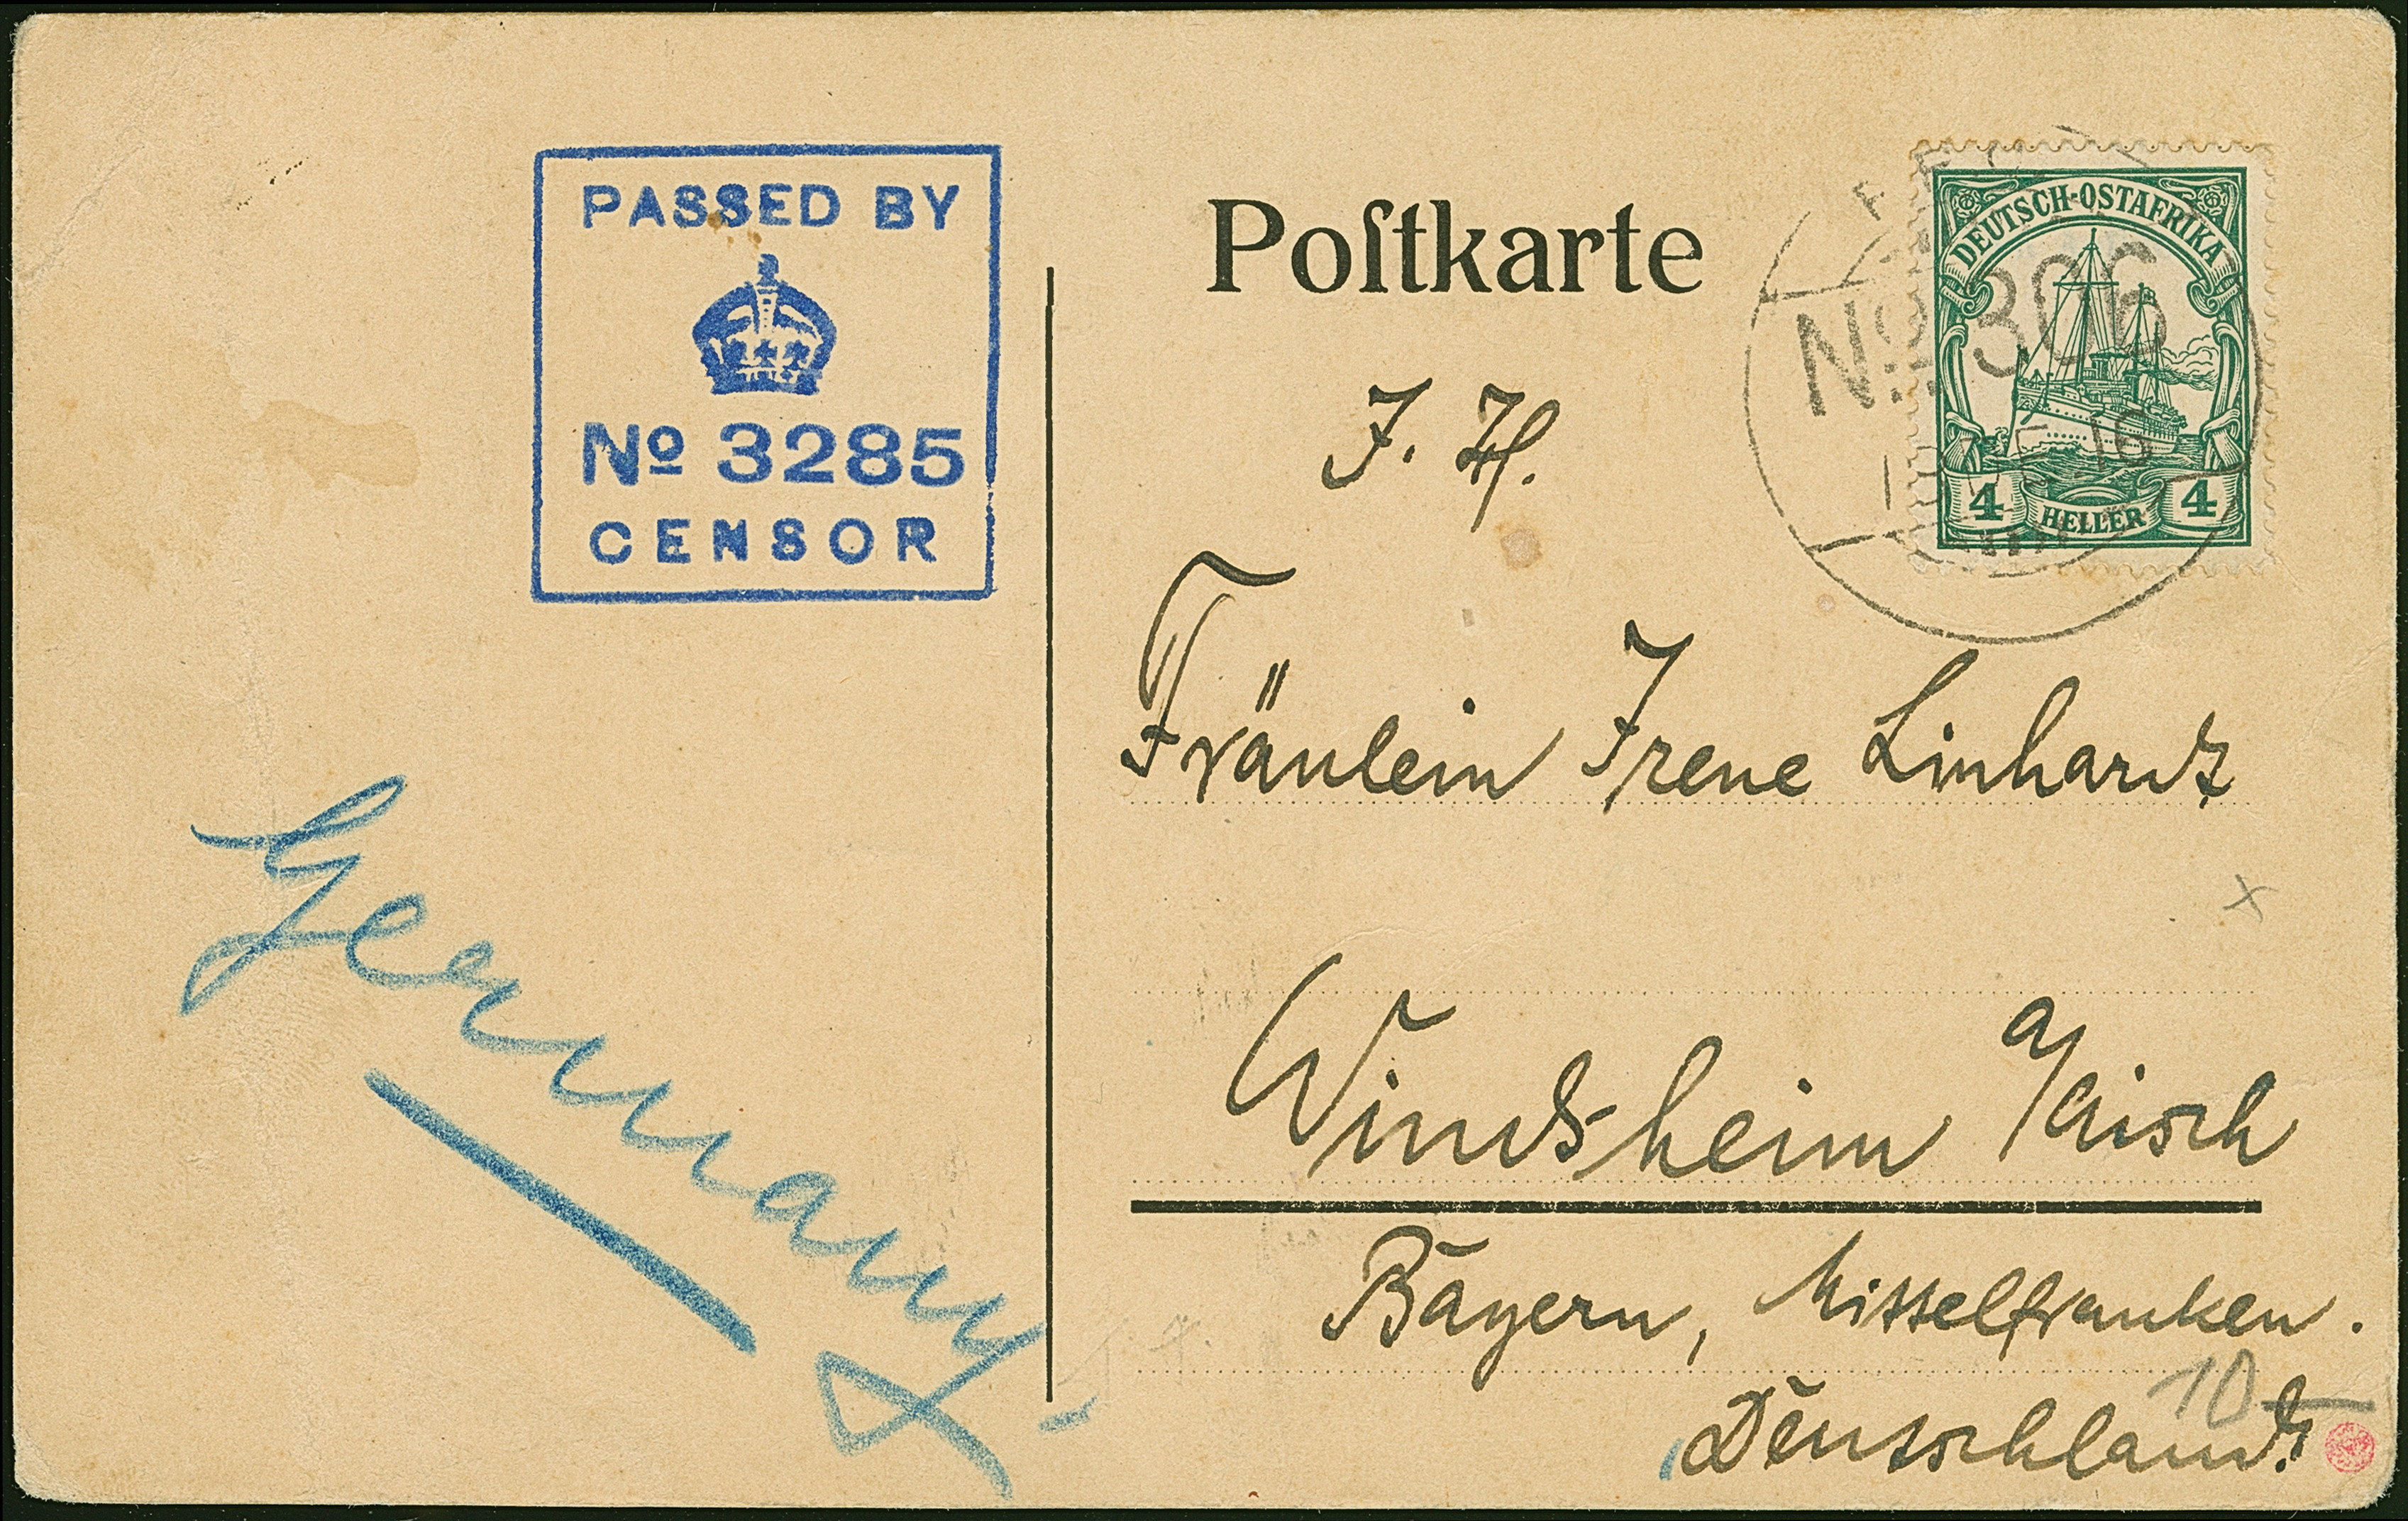 PASSED BY
No 3285
CENSOR
Germany
Poſtkarte
DEUTSCH-OSTAFRIKA
4 HELLER 4
No 306
16
J. H.
Fräulein Irene Linhardt
Windsheim a/Aisch
Bayern, Mittelfranken.
Deutschland.
10